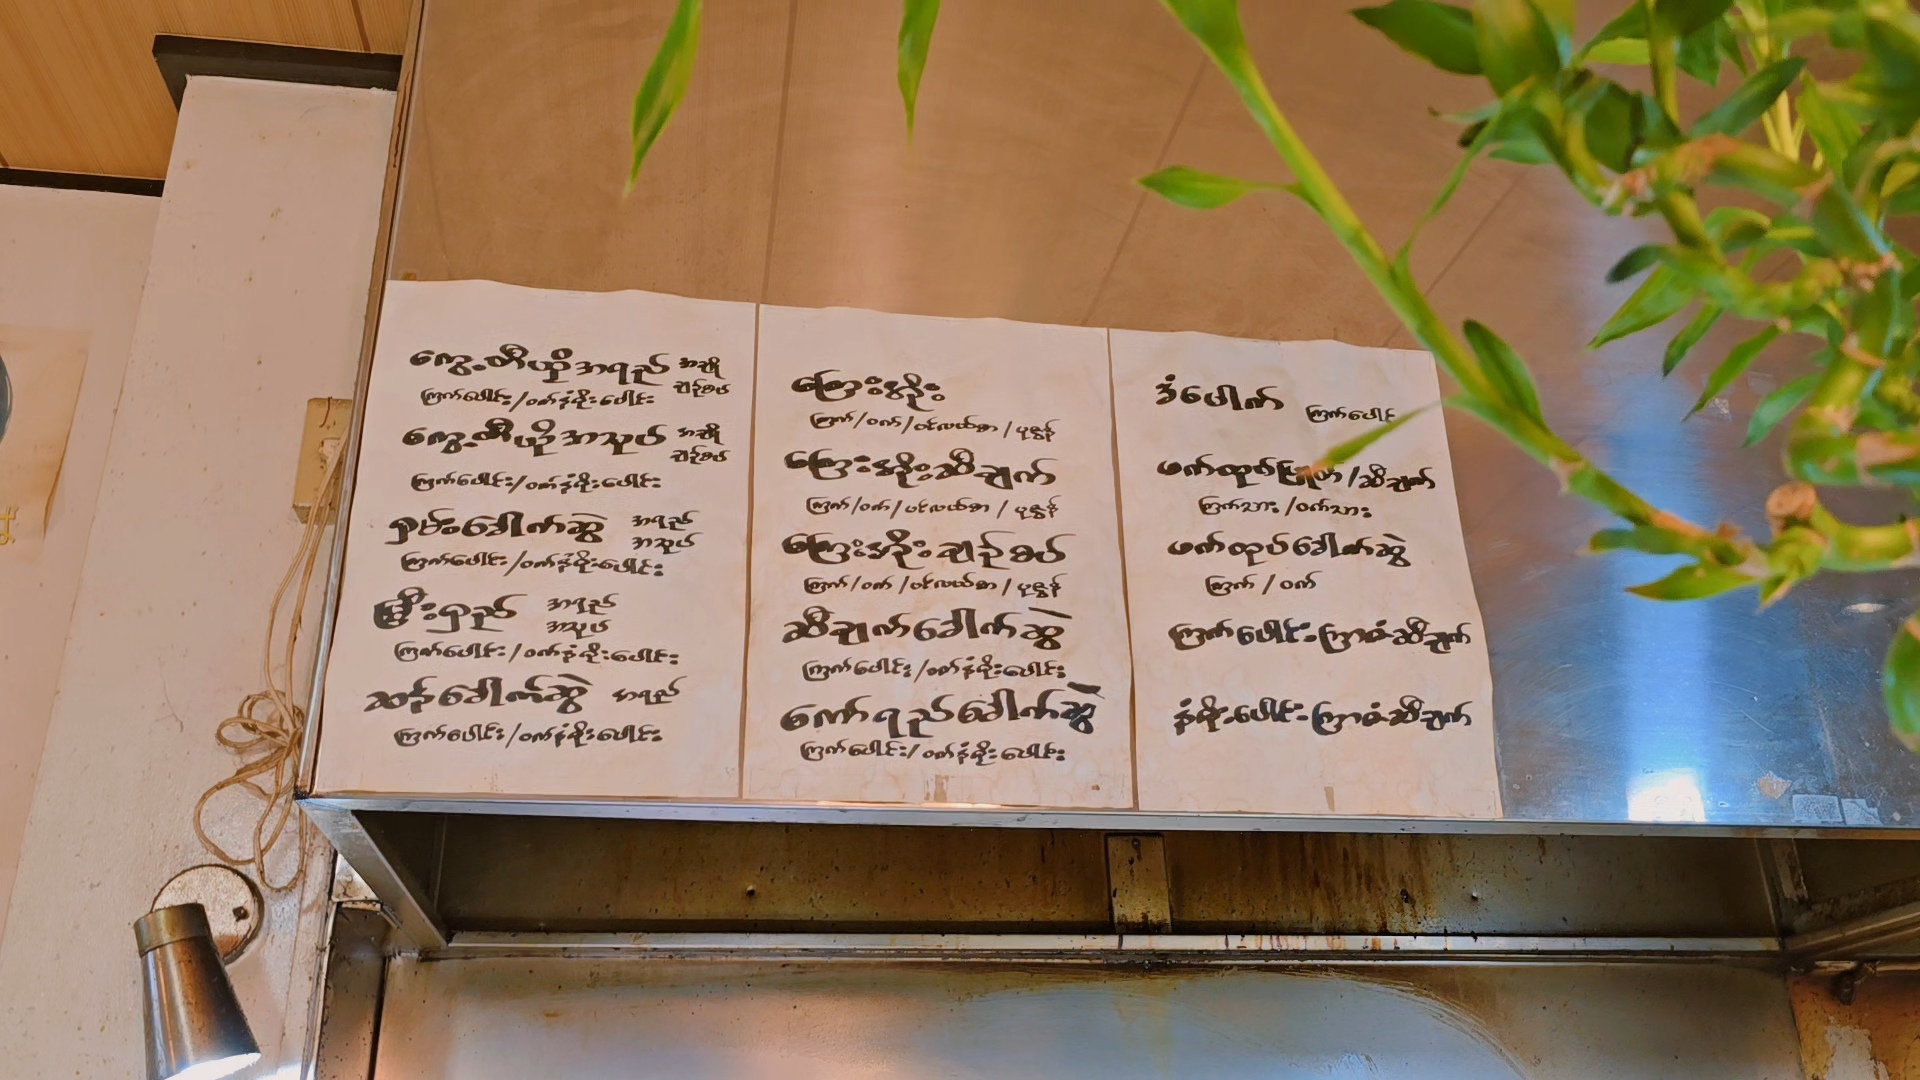 ကွေ့တီယိုအရည် အချို
ချဉ်စပ်
ကြက်ပေါင်း/ဝက်နံရိုးပေါင်း
ကွေ့တီယိုအသုပ် အချို
ချဉ်စပ်
ကြက်ပေါင်း/ဝက်နံရိုးပေါင်း
ရှမ်းခေါက်ဆွဲ အရည်
အသုပ်
ကြက်ပေါင်း/ဝက်နံရိုးပေါင်း
မြီးရှည် အရည်
အသုပ်
ကြက်ပေါင်း/ဝက်နံရိုးပေါင်း
ဆန်ခေါက်ဆွဲ အရည်
ကြက်ပေါင်း/ဝက်နံရိုးပေါင်း
ကြေးအိုး
ကြက်/ဝက်/ပင်လယ်စာ/ပုဇွန်
ကြေးအိုးဆီချက်
ကြက်/ဝက်/ပင်လယ်စာ/ပုဇွန်
ကြေးအိုးချဉ်စပ်
ကြက်/ဝက်/ပင်လယ်စာ/ပုဇွန်
ဆီချက်ခေါက်ဆွဲ
ကြက်ပေါင်း/ဝက်နံရိုးပေါင်း
ကော်ရည်ခေါက်ဆွဲ
ကြက်ပေါင်း/ဝက်နံရိုးပေါင်း
ဒံပေါက် ကြက်ပေါင်
ဖက်ထုပ်ပြုတ်/ဆီချက်
ကြက်သား/ဝက်သား
ဖက်ထုပ်ခေါက်ဆွဲ
ကြက်/ဝက်
ကြက်ပေါင်းကြာဇံဆီချက်
နံရိုးပေါင်းကြာဇံဆီချက်